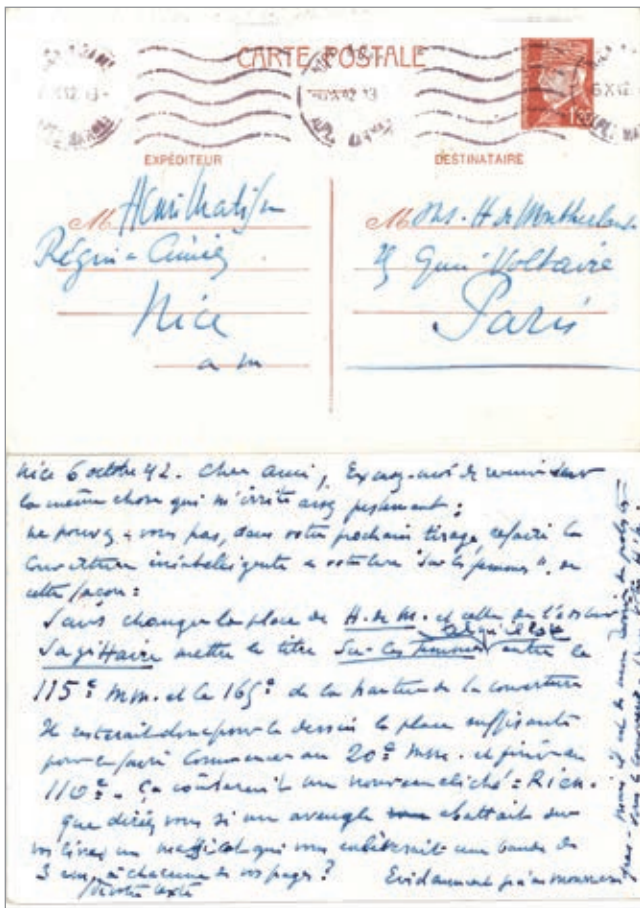 CARTE POSTALE
6 X 42 13
1F20
EXPÉDITEUR
DESTINATAIRE
M Henri Matisse
Régina Cimiez
Nice
a m
M ons. H de Montherlant
25 Quai Voltaire
Paris
Nice 6 octobre 42. Cher ami, Excusez-moi de revenir sur
la même chose qui m'irrite assez
ne pouvez-vous pas, dans votre prochain tirage, refaire la
couverture inintelligente a votre livre "sur les femmes", de
cette façon:
Sans changer la place de H. de M. et celle de l'éditeur
Sagittaire mettre le titre Sur les femmes entre le
115e mm. et le 165e de la hauteur de la couverture
Il resterait donc pour le dessin la place suffisante
pour le faire commencer au 20e mm. et finir au
110e. Ça coûterait un nouveau cliché = Rien.
Que diriez vous si un aveugle abattait sur
vos livres un massicot qui vous enlèverait une bande de
3 cm. à chacune de vos pages?
de votre texte
Evidemment